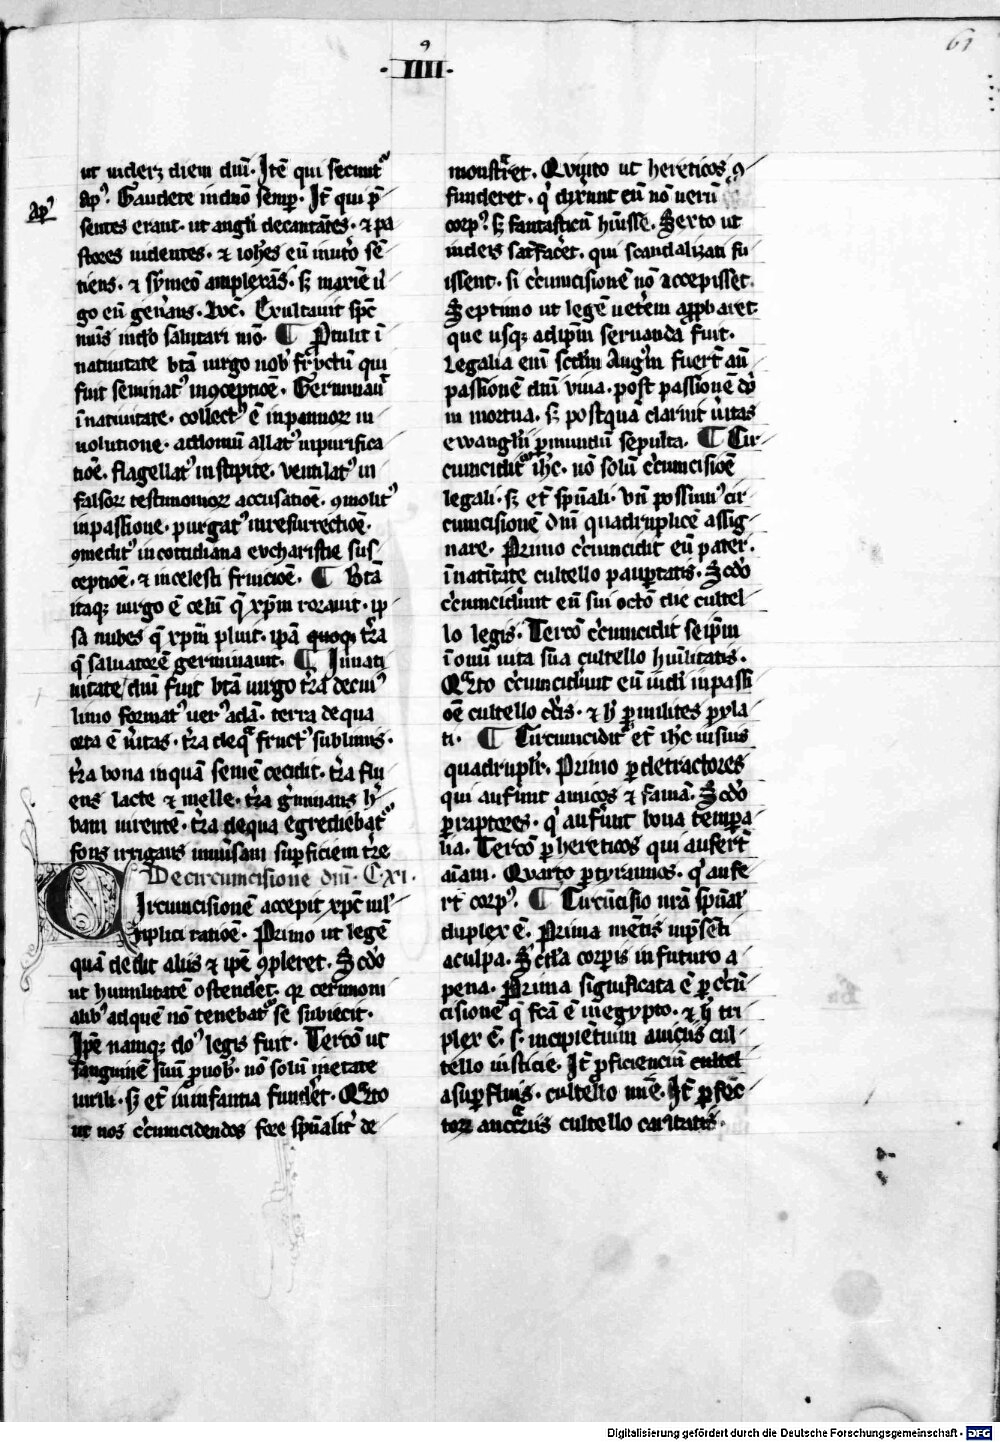 ·IIII·
61
ut uiderꝫ diem dn̄i· Itē qui secunt͛
apꝰ
apꝰ· Gaudete in dn̄o semꝑ· It̄ qui p̄
sentes erant· ut angli decantātes· ⁊ pa
stores uidentes· ⁊ ioh̄es eū inut͛o sē
tiens· ⁊ symeō amplexās· sꝫ maxīe u͛
go eū gen͛ans· luc̄· Exultauit sp̄c
meus in d͛o salutari meo· ¶ Ptulit ī
natiuitate btā uirgo nob̛ fructū qui
fuit seminatꝰ in ꝯceptiōe· Germinau͛
ī natiuitate· collectꝰ ē in pannorꝝ in
uolutione· ad domū allatꝰ in purifica
tiōe· flagellatꝰ in stipite· ventilatꝰ in
falsorꝝ testimoniorꝝ accusatiōe· ꝯmolitꝰ
in passione· purgatꝰ in resurrectiōe·
ꝯmeditꝰ in cottidiana eucharistie sus
ceptiōe· ⁊ in celesti fruiciōe· ¶ Btā
itaqꝫ uirgo ē celū q̄ xp̄m rorauit· ip
sa nubes q̄ xp̄m pluit· ip̄a quoqꝫ t͛ra
q̄ saluatorē germinauit· ¶ In nati
uitate dn̄i fuit btā uirgo t͛ra de cuiꝰ
limo formatꝰ uerꝰ adā· terra de qua
orta ē u͛itas· t͛ra de q̄ fructꝰ sublimis·
t͛ra bona in quā semē cecidit· t͛ra flu
ens lacte ⁊ melle· t͛ra g͛minans h͛
bam uirentē· t͛ra de qua egrediebat͛
fons irrigans uniu͛sam suꝑficiem t͛re
De circumcisione dn̄i· CXI·
Circumcisionē accepit xp̄c mul
tiplici ratiōe· Primo ut legē
quā dedit aliis ⁊ ip̄e ꝯpleret· Scd̄o
ut humilitatē ostenderet· qꝛ cerimoni
alibꝰ ad quē nō tenebat͛ se subiecit·
Ip̄e namqꝫ dn̄s legis fuit· Tercō ut
sanguinē suū ꝓ nob̛· nō solū in etate
uirili· sꝫ et̄ in infantia fund͛et· Qrto
ut nos c͛cumcidendos fore spūalit͛ de
monstret· Quinto ut hereticos ꝯ
funderet· q̛ dixr̄unt eū nō uerū
corpꝰ· sꝫ fantasticū h̄uisse· Sexto ut
iudeis satisfac͛et· qui scandalizati fu
issent· si c͛cumcisionē nō accepisset·
Septimo ut legē uet͛em aꝓbaret
que usqꝫ ad ip̄m seruanda fuit·
Legalia eni̅ scd̄m Aug̛m fuer̄t an̄
passionē dn̄i viua· post passionē d͛o
in mortua· sꝫ postquā claruit u͛itas
ewangl̄ii ꝑ mundū sepulta· ¶ Cir
cumcidit͛ ih̄c· nō solū c͛cumcisiōe
legali· sꝫ et̄ spūali· Vn̄ possumꝰ cir
cumcisionē dn̄i quadruplicē assig
nare· Primo c͛cumcidit eū pater·
ī natiu͛tate cultello paupertatis· Scd̄o
c͛cumciderūt eū sui octō die cultel
lo legis· Tercō c͛cumcidit seip̄m
ī omī uita sua cultello hu͛ilitatis·
Qrto c͛cumciderūt eū iudi͛ in passi
oē cultello c͛cis· ⁊ h͛ ꝑ milites pyla
ti· ¶ Circumcidit͛ et̄ ih̄c in suis
quadrupl͛r· Primo ꝑ detractores
qui aufer̄unt amicos ⁊ famā· Scd̄o
ꝑ raptores· q̛ aufer̄unt bona tempora
lia· Tercō ꝑ hereticos qui aufer̄t
aīam· Quarto ꝑ tyrannos· q̛ aufe
rt̄ corpꝰ· ¶ Circūcisio nr̄a spūal͛
duplex ē· Prima mētis in p̄sēti
a culpa· Scd̄a corꝑis in futuro a
pena· Prima significata ē ꝑ c͛cū
cisionē q̄ fc̄a ē in egypto· ⁊ h̛ tri
plex ē· s· incipientium amicus cul
tello iusticie· It̄ ꝓficienciū cultel
a suꝑfluis· cultello mīe· It̄ ꝑfec
torꝝ a nccr͛iis cultello caritatis·
Digitalisierung gefördert durch die Deutsche Forschungsgemeinschaft · DFG